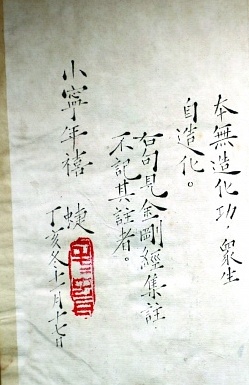 本無造化功，眾生
自造化。
右句見金剛經集註，
不記其註者。
小寧年禧
丁亥冬十一月十七日